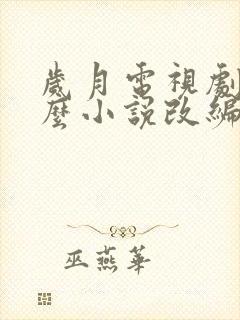 歲月電視劇
麼小說改編
巫燕華